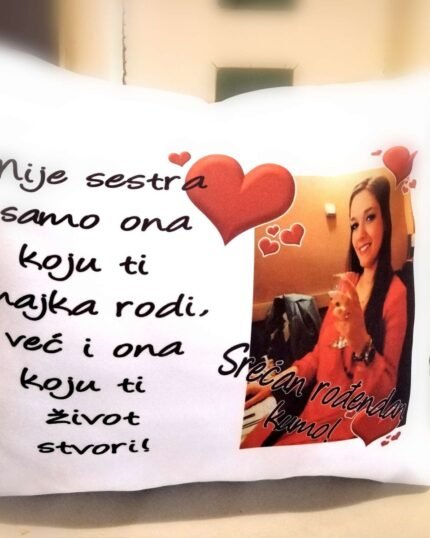 Nije sestra
samo ona
koju ti
majka rodi,
već i ona
koju ti
život
stvori!
Srećan rođendan
kumo!